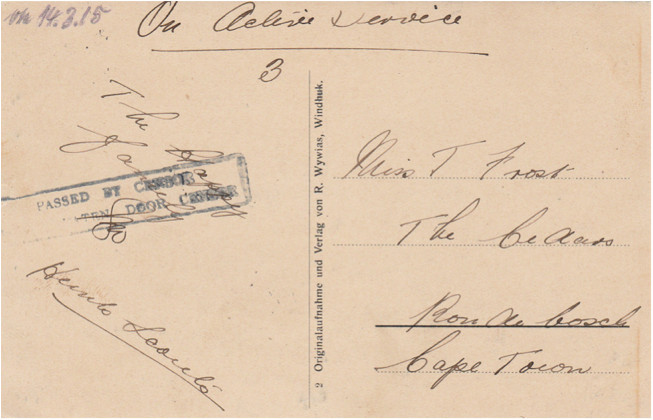 14.3.15
On Active Service
3
The
Family
PASSED BY CENSOR
DOOR CENSOR
Scouts
2 Originalaufnahme und Verlag von R. Wywias, Windhuk.
Miss T Frost
The Cedars
Rondebosch
Cape Town